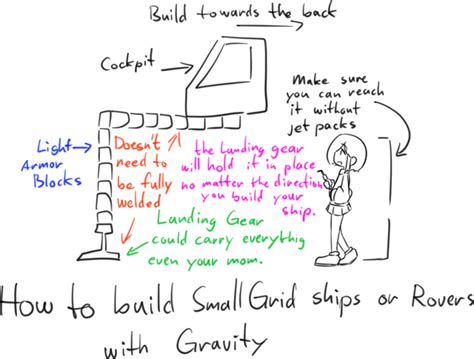 Build towards the back
Cockpit
Make sure
you can reach
it without
jet packs
Light
Armor
Blocks
Doesn't
need to
be fully
welded
the landing gear
will hold it in place
no matter the direction
you build your
ship.
Landing Gear
could carry everythig
even your mom.
How to build Small Grid ships or Rovers
with Gravity